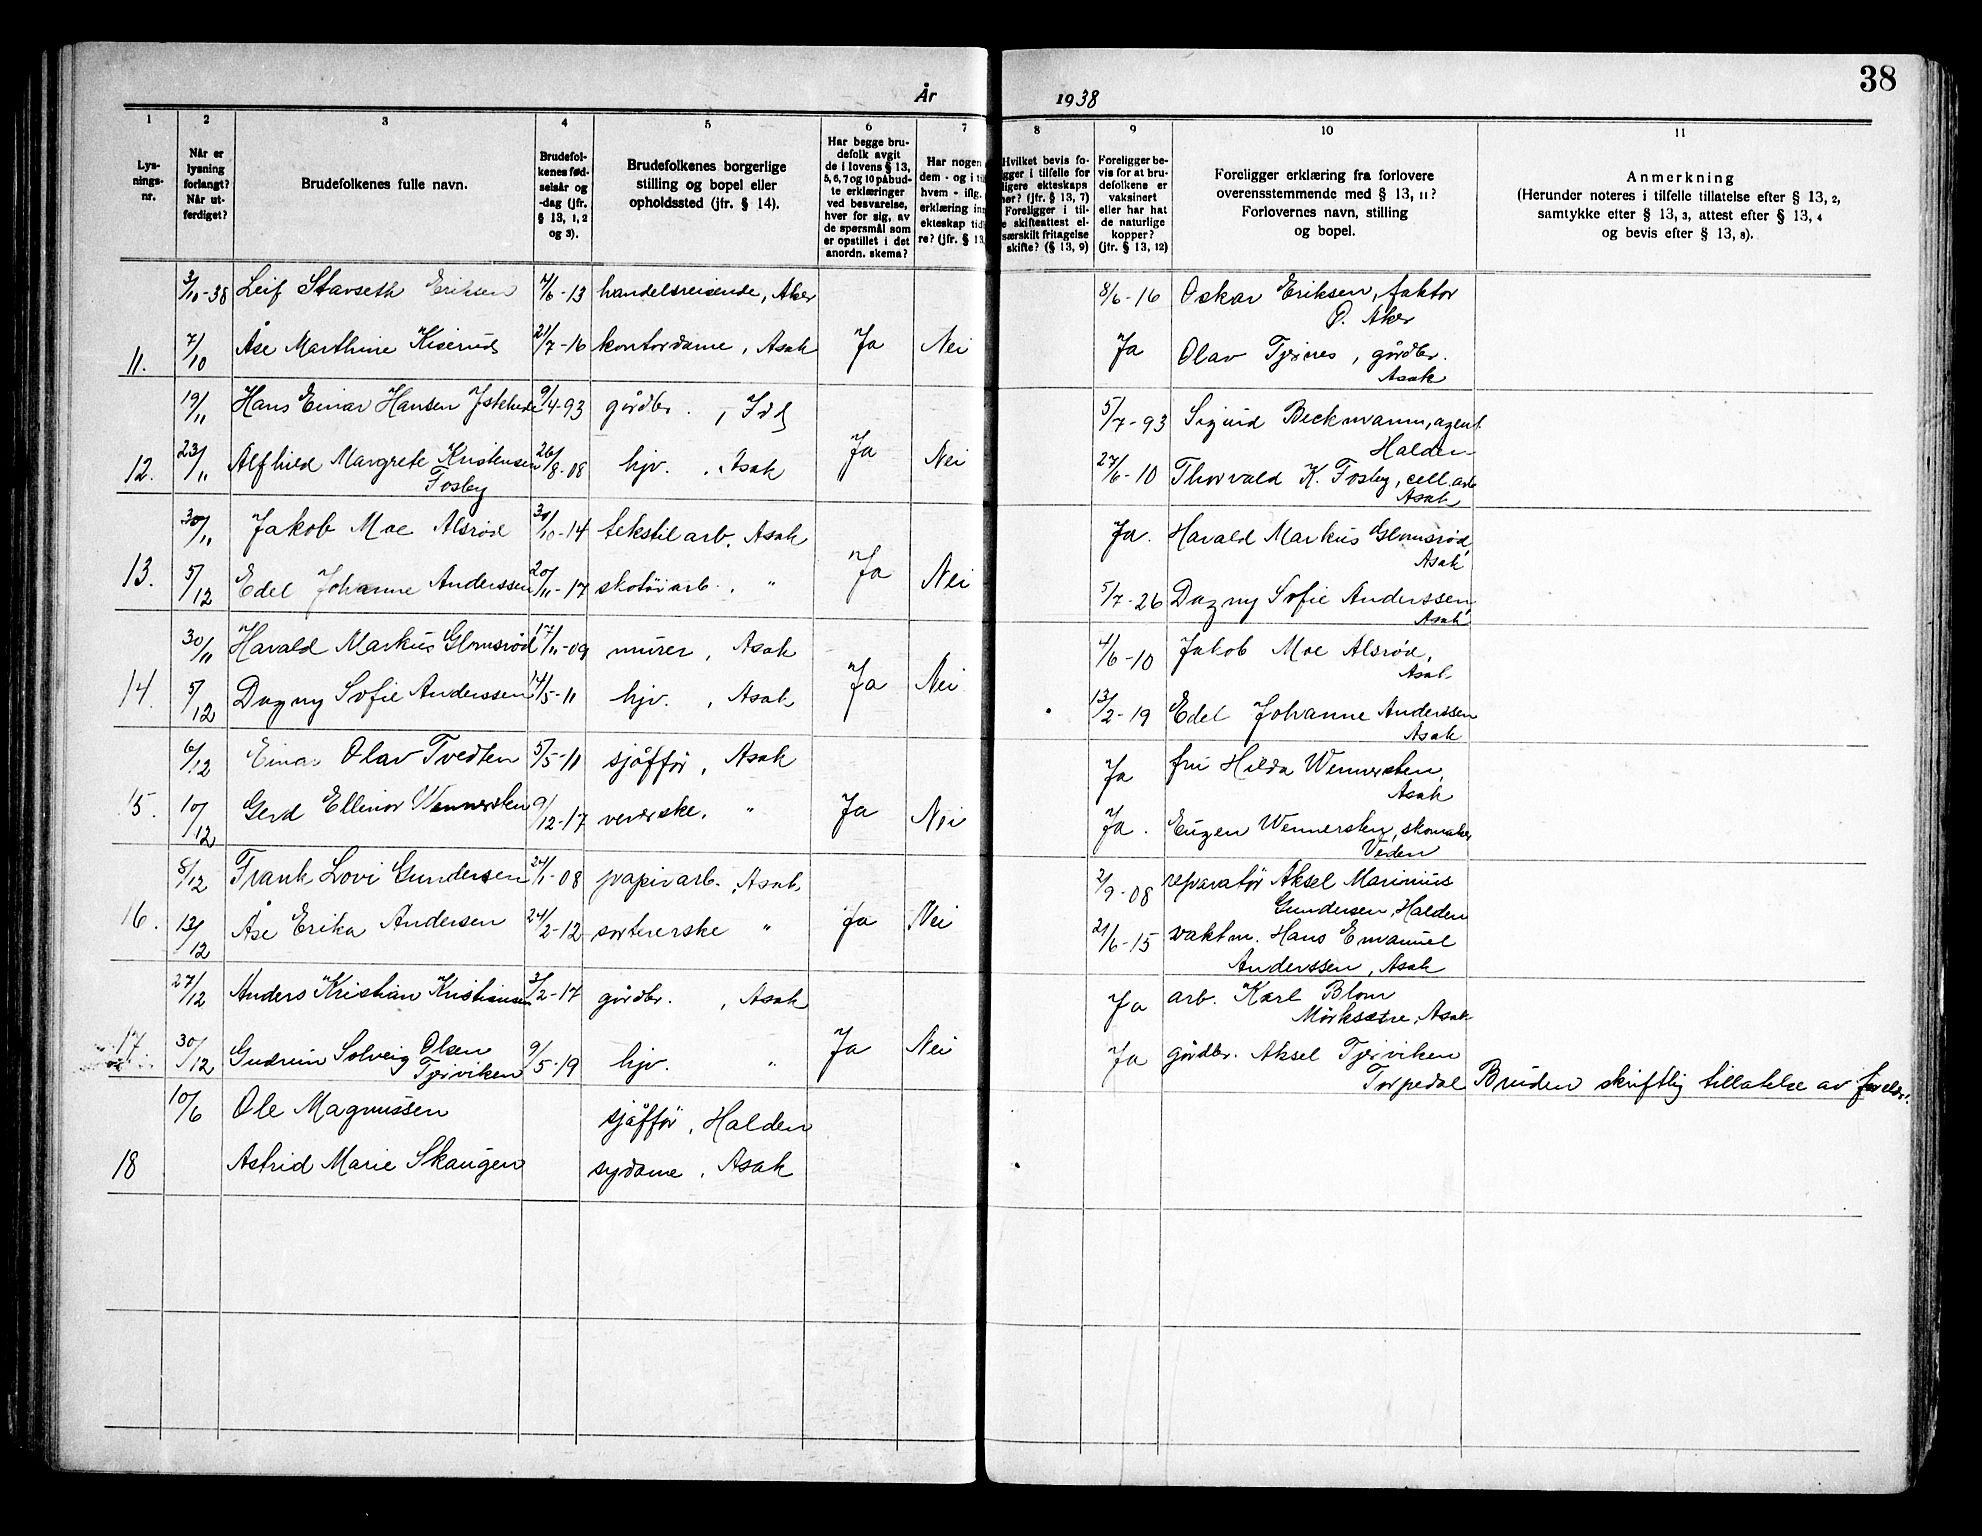 38
År 1938
1 2 3 4 5 6 7 8 9 10 11
Lys-
nings-
nr.
Når er
lysning
forlangt?
Når ut-
ferdiget?
Brudefolkenes fulle navn.
Brudefol-
kenes fød-
selsår og
-dag (jfr.
§ 13, 1, 2
og 3).
Brudefolkenes borgerlige
stilling og bopel eller
opholdssted (jfr. § 14).
Har begge bru-
defolk avgit
de i lovens § 13,
5, 6, 7 og 10 påbud-
te erklæringer
ved besvarelse,
hver for sig, av
de spørsmål som
er opstillet i det
anordn. skema?
Har nogen
dem - og i til
hvem - iflg.
erklæring inn
ekteskap tid
re? (jfr. § 13,
Hvilket bevis fo-
gger i tilfelle for
ligere ekteskaps
hør? (jfr. § 13, 7)
Foreligger i til-
e skifteattest el-
særskilt fritagelse
skifte? (§ 13, 9)
Foreligger be-
vis for at bru-
defolkene er
vaksinert
eller har hat
de naturlige
kopper?
(jfr. § 13, 12)
Foreligger erklæring fra forlovere
overensstemmende med § 13, 11?
Forlovernes navn, stilling
og bopel.
Anmerkning
(Herunder noteres i tilfelle tillatelse efter § 13, 2,
samtykke efter § 13, 3, attest efter § 13, 4
og bevis efter § 13, 8).
3/10-38 Leif Stavseth Eriksen 7/6-13 handelsreisende, Aker 8/6-16 Oskar Eriksen, faktor
Ø. Aker
11. 7/10 Åse Marthine Kiserud 21/7-16 kontordame, Asak Ja Nei Ja Olav Tjernes, gårdbr.
Asak
19/11 Hans Einar Hansen 9/4-93 gårdbr., Idd 5/7-93 Sigurd Beckmann, agent
Halden
12. 23/11 Alfhild Margrete Kristensen 26/8-08 hjv., Asak Ja Nei 27/6-10 Thorvald K. Fosby, cell.arb
Fosby Asak
30/11 Jakob Moe Alsrød 30/10-14 tekstilarb. Asak Ja. Harald Markus Glomsrød,
Asak
13. 5/12 Edel Johanne Anderssen 20/11-17 skotøiarb. " Ja Nei 5/7-26 Dagny Sofie Anderssen,
Asak
30/11 Harald Markus Glomsrød 17/11-09 murer, Asak 4/6-10 Jakob Moe Alsrød,
Asak
14. 5/12 Dagny Sofie Anderssen 14/5-11 hjv., Asak Ja Nei 13/2-19 Edel Johanne Anderssen
Asak
6/12 Einar Olav Tvedten 5/5-11 sjåffør, Asak Ja fru Hilda Wennersten,
Asak
15. 10/12 Gerd Ellinor Wennersten 9/12-17 veverske, " Ja Nei Ja. Eugen Wennersten, skomaker
Veden
8/12 Frank Lovi Gundersen 24/1-08 papirarb. Asak 2/9-08 reparatør Aksel Marinius
Gundersen, Halden
16. 13/12 Åse Erika Andersen 24/2-12 sortererske " Ja Nei 21/6-15 vaktm. Hans Emanuel
Anderssen, Asak
27/12 Anders Kristian Kristiansen 3/2-17 gårdbr., Asak Ja arb. Karl Blom
Mørksætre, Asak
17 30/12 Gudrun Solveig Olsen 9/5-19 hjv. " Ja Nei Ja gårdbr. Aksel Tjerviken
Tjerviken Torpedal Bruden skriftlig tillatelse av foreldr.
10/6 Ole Magnussen sjåffør, Halden
18 Astrid Marie Skaugen sydame, Asak